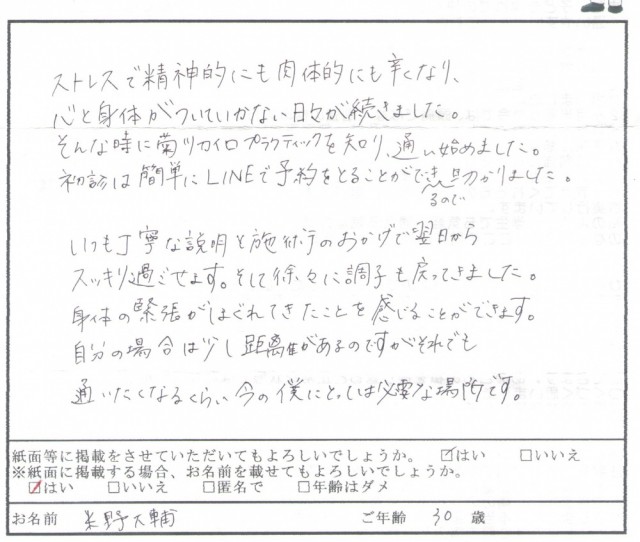 ストレスで精神的にも肉体的にも辛くなり、
心と身体がついていかない日々が続きました。
そんな時に菊ツカイロプラクティックを知り、通い始めました。
初診は簡単にLINEで予約をとることができ助かりました。
るので
いつも丁寧な説明と施術のおかげで翌日から
スッキリ過ごせます。そして徐々に調子も戻ってきました。
身体の緊張がほぐれてきたことを感じることができます。
自分の場合は少し距離があるのですがそれでも
通いたくなるくらい今の僕にとっては必要な場所です。
紙面等に掲載をさせていただいてもよろしいでしょうか。 ☑はい □いいえ
※紙面に掲載する場合、お名前を載せてもよろしいでしょうか。
☑はい □いいえ □匿名で □年齢はダメ
お名前 米野大輔 ご年齢 30 歳